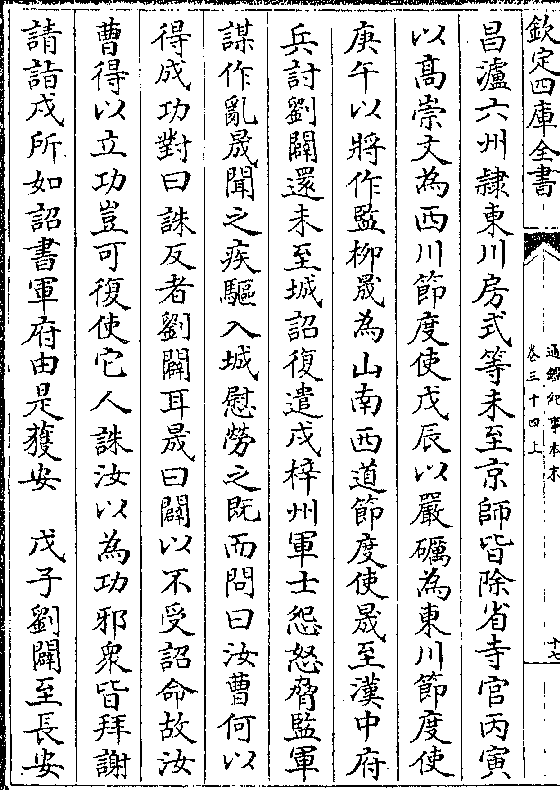 欽定四庫全書
通鑑紀事本末
卷三十四上
十七
昌瀘六州隸東川房式等未至京師皆除省寺官丙寅
以髙崇文為西川節度使戊辰以嚴礪為東川節度使
庚午以將作監柳晟為山南西道節度使晟至漢中府
兵討劉闢還未至城詔復遣戍梓州軍士怨怒脅監軍
謀作亂晟聞之疾驅入城慰勞之既而問曰汝曹何以
得成功對曰誅反者劉闢耳晟曰闢以不受詔命故汝
曹得以立功豈可復使它人誅汝以為功邪衆皆拜謝
請詣戍所如詔書軍府由是獲安　戊子劉闢至長安